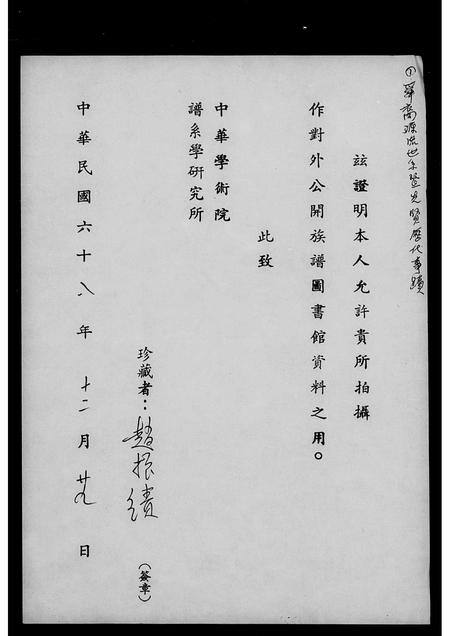 ①宗裔源流世系暨先賢歷代事蹟
玆證明本人允許貴所拍攝
作對外公開族譜圖書館資料之用。
此致
中華學術院
譜系學研究所
珍藏者：趙振績（簽章）
中華民國六十八年十二月廿九日